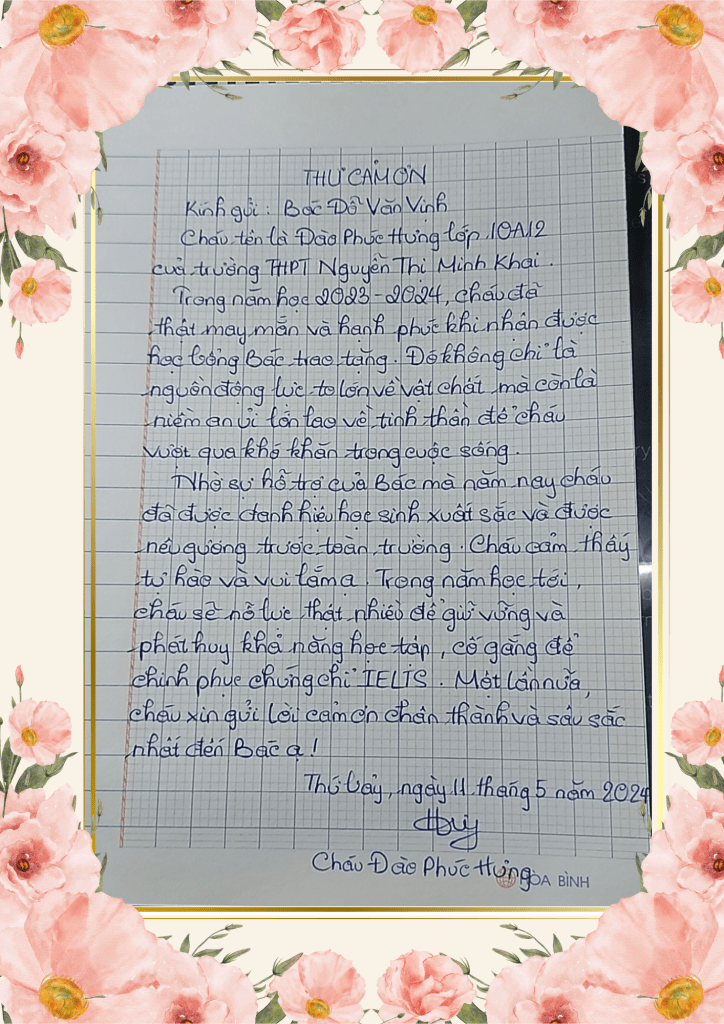 THƯ CẢM ƠN
Kính gửi : Bác Đỗ Văn Vinh
Cháu tên là Đào Phúc Hưng lớp 10A12
của trường THPT Nguyễn Thị Minh Khai.
Trong năm học 2023-2024, cháu đã
thật may mắn và hạnh phúc khi nhận được
học bổng Bác trao tặng. Đó không chỉ là
nguồn động lực to lớn về vật chất mà còn là
niềm an ủi lớn lao về tinh thần để cháu
vượt qua khó khăn trong cuộc sống.
Nhờ sự hỗ trợ của Bác mà năm nay cháu
đã được danh hiệu học sinh xuất sắc và được
nêu gương trước toàn trường. Cháu cảm thấy
tự hào và vui lắm ạ. Trong năm học tới,
cháu sẽ nỗ lực thật nhiều để giữ vững và
phát huy khả năng học tập, cố gắng để
chinh phục chứng chỉ IELTS. Một lần nữa,
cháu xin gửi lời cảm ơn chân thành và sâu sắc
nhất đến Bác ạ!
Thứ bảy, ngày 11 tháng 5 năm 2024
Cháu Đào Phúc Hưng
HÒA BÌNH